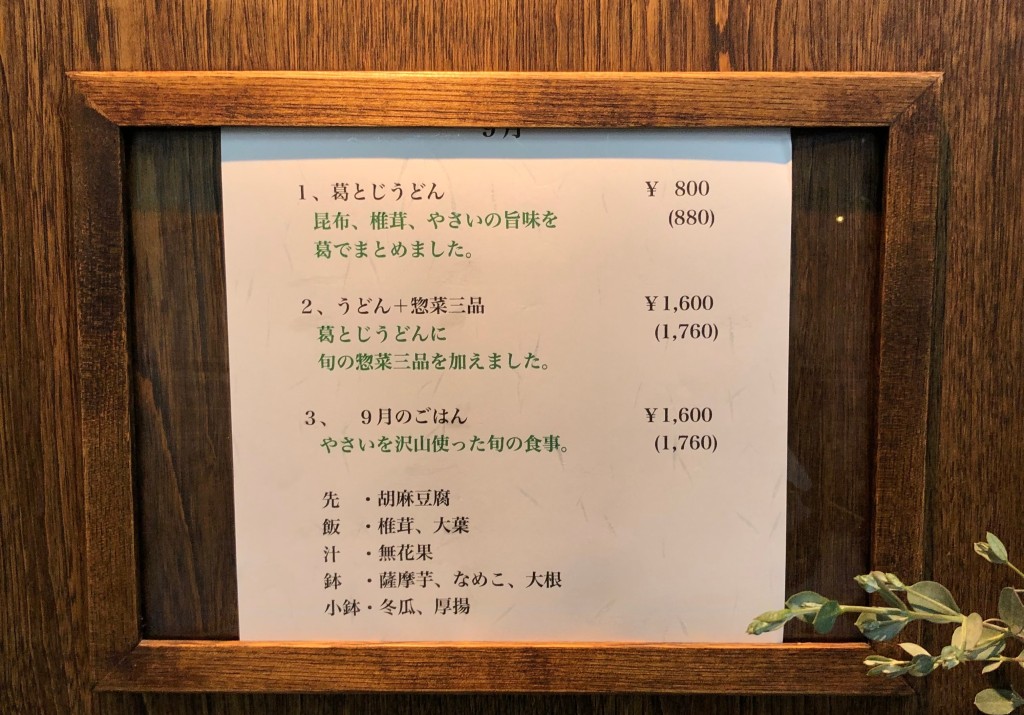 9月
1、葛とじうどん ¥ 800
昆布、椎茸、やさいの旨味を (880)
葛でまとめました。
2、うどん＋惣菜三品 ¥1,600
葛とじうどんに (1,760)
旬の惣菜三品を加えました。
3、 9月のごはん ¥1,600
やさいを沢山使った旬の食事。 (1,760)
先 ・胡麻豆腐
飯 ・椎茸、大葉
汁 ・無花果
鉢 ・薩摩芋、なめこ、大根
小鉢・冬瓜、厚揚